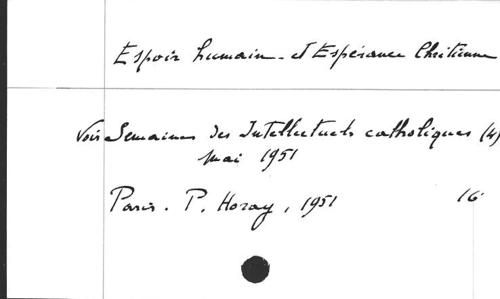 Espoir humain - et Espérance Chrétienne
Voir Semaines des Intellectuels catholiques (4)
mai 1951
Paris. P. Horay, 1951 16